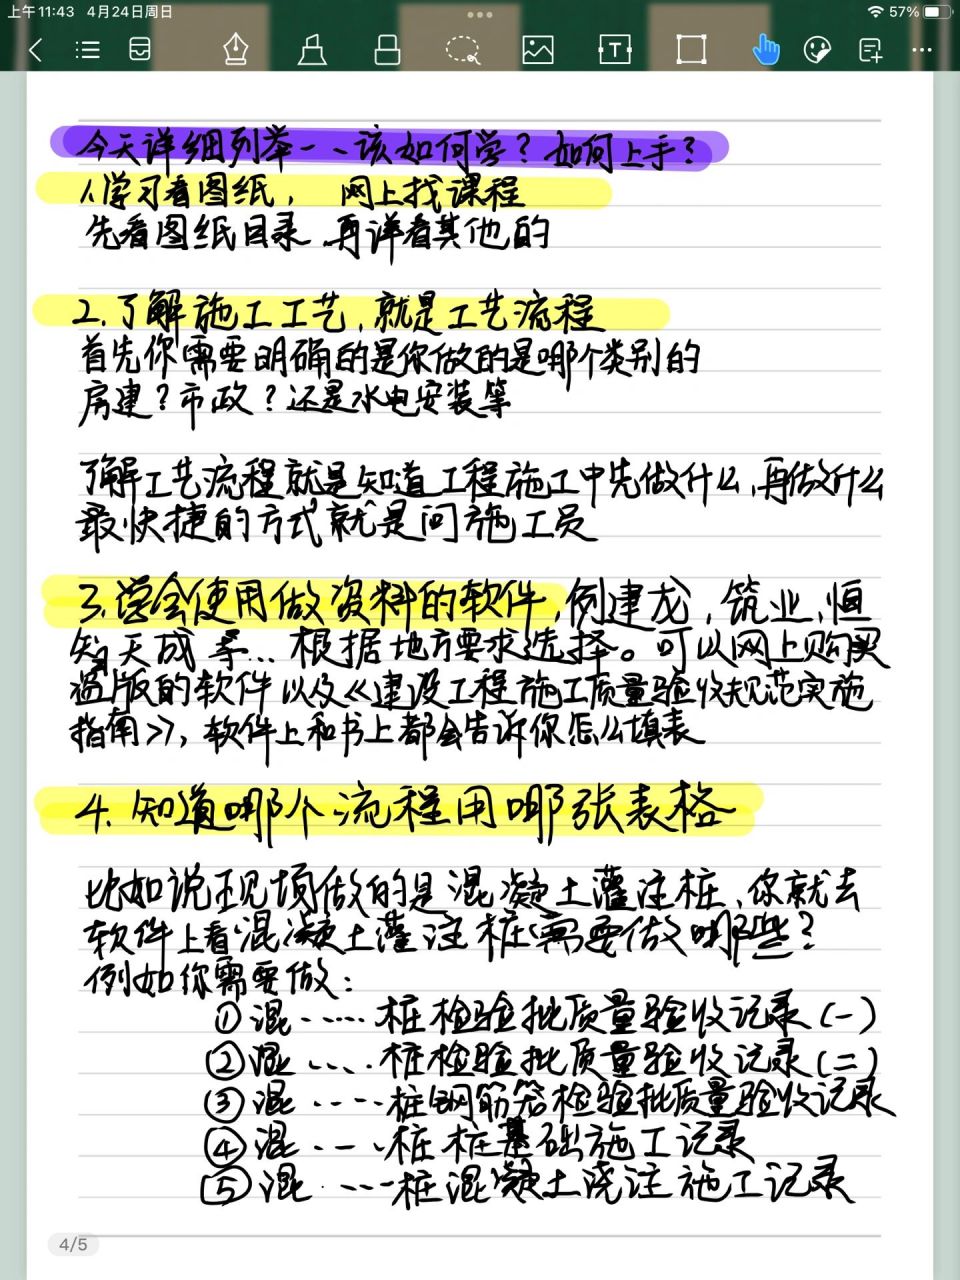 上午11:43 4月24日周日
57%
今天详细列举一、该如何学?如何上手?
1.学习看图纸, 网上找课程
先看图纸目录,再详看其他的
2.了解施工工艺,就是工艺流程
首先你需要明确的是你做的是哪个类别的
房建?市政?还是水电安装等
了解工艺流程就是知道工程施工中先做什么,再做什么
最快捷的方式就是问施工员
3.学会使用做资料的软件,例建龙,筑业,恒
智天成等...根据地方要求选择。可以网上购买
盗版的软件以及《建设工程施工质量验收规范实施
指南》,软件上和书上都会告诉你怎么填表
4.知道哪个流程用哪张表格
比如说现场做的是混凝土灌注桩,你就去
软件上看混凝土灌注桩需要做哪些?
例如你需要做:
①混·····桩检验批质量验收记录(一)
②混····桩检验批质量验收记录(二)
③混····桩钢筋笼检验批质量验收记录
④混···桩桩基础施工记录
⑤混····桩混凝土浇注施工记录
4/5